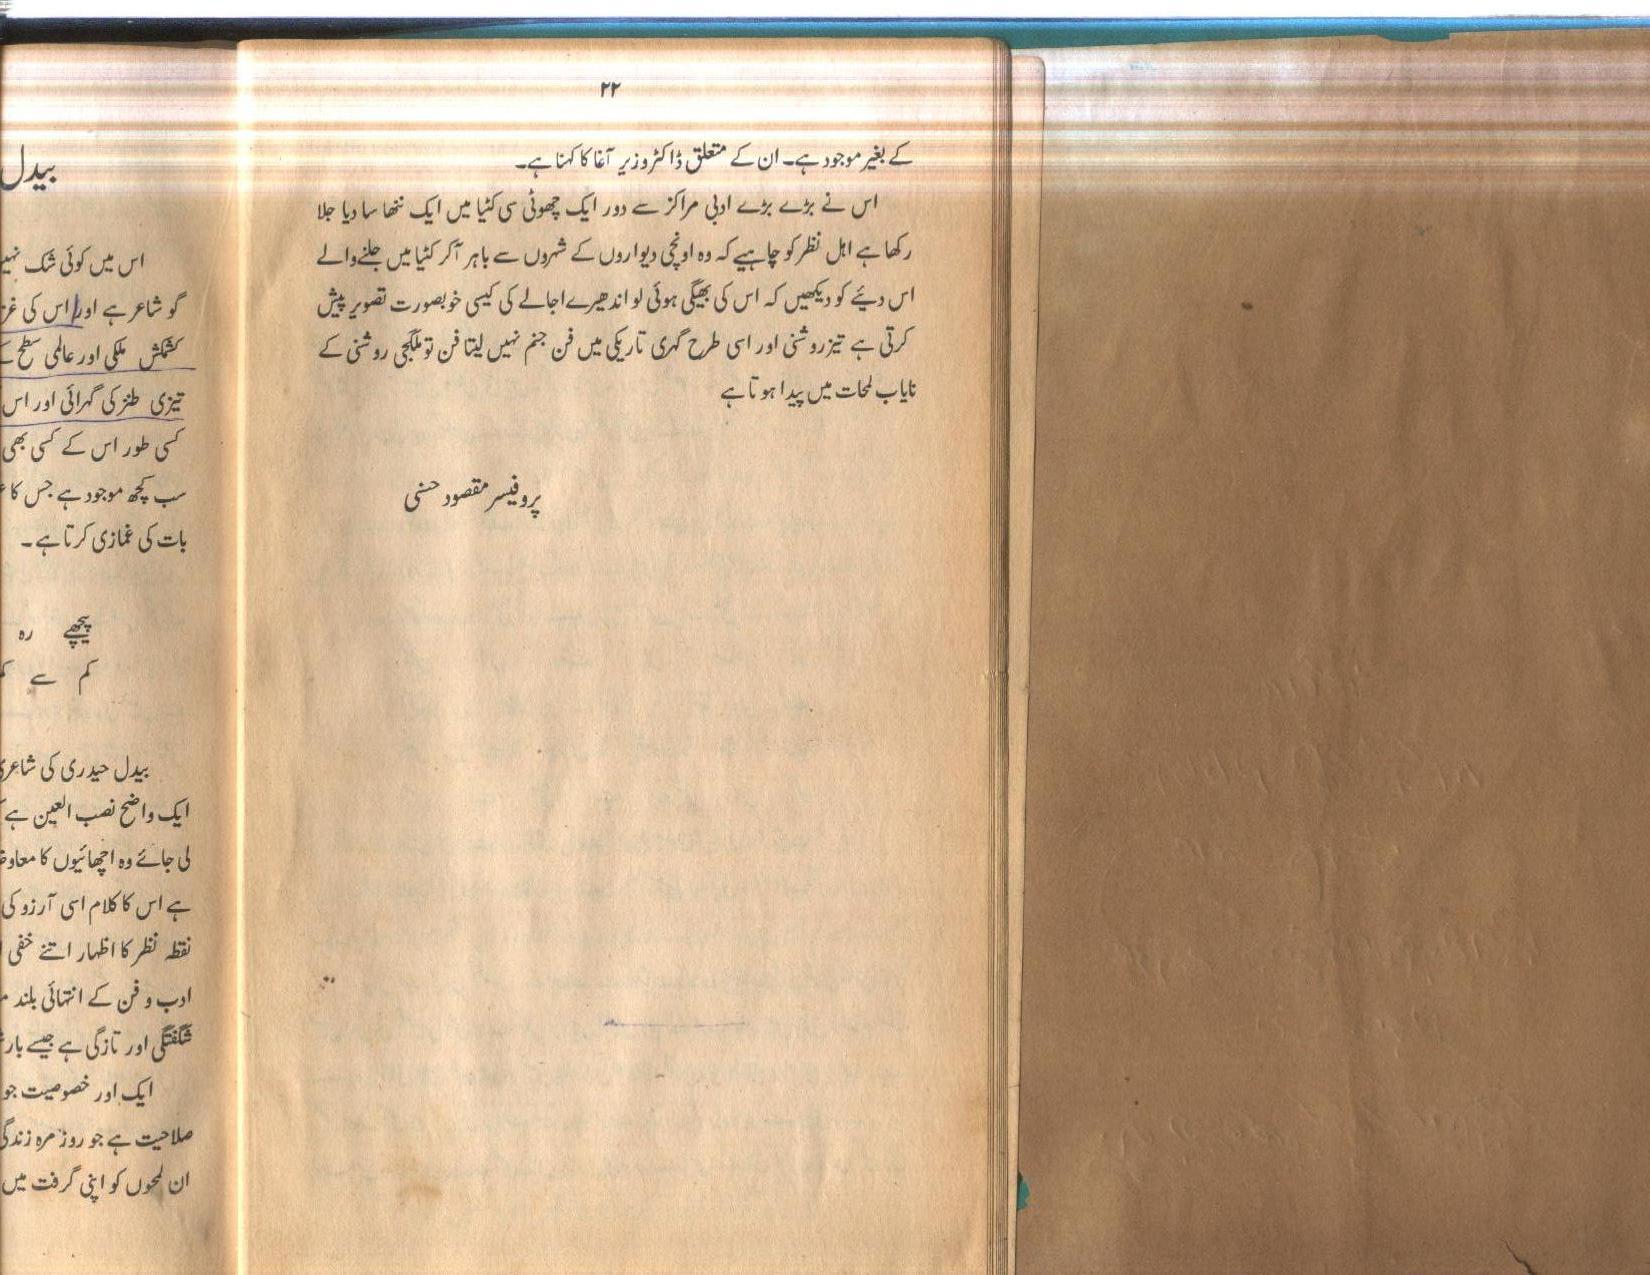 ۲۲
کے بغیر موجود ہے۔ ان کے متعلق ڈاکٹر وزیر آغا کا کہنا ہے۔
اس نے بڑے بڑے ادبی مراکز سے دور ایک چھوٹی سی کٹیا میں ایک ننھا سا دیا جلا
رکھا ہے اہل نظر کو چاہیے کہ وہ اونچی دیواروں کے شہروں سے باہر آ کر کٹیا میں جلنے والے
اس دیئے کو دیکھیں کہ اس کی بھیگی ہوئی لو اندھیرے اجالے کی کیسی خوبصورت تصویر پیش
کرتی ہے تیز روشنی اور اسی طرح گہری تاریکی میں فن جنم نہیں لیتا فن تو ملگجی روشنی کے
نایاب لمحات میں پیدا ہوتا ہے
پروفیسر مقصود حسنی
بیدل
اس میں کوئی شک نہیں
گو شاعر ہے اور اس کی
کشمکش ملکی اور عالمی سطح
تیزی طنز کی گہرائی اور اس
کسی طور اس کے کسی بھی
سب کچھ موجود ہے جس کا
بات کی غمازی کرتا ہے۔
پیچھے رہ
کم سے
بیدل حیدری کی شاعری
ایک واضح نصب العین ہے
لی جائے وہ اچھائیوں کا
ہے اس کا کلام اسی آرزو کی
نقطہ نظر کا اظہار اتنے خفی
ادب و فن کے انتہائی بلند
شگفتگی اور تازگی ہے جیسے
ایک اور خصوصیت جو
صلاحیت ہے جو روز مرہ زندگی
ان لمحوں کو اپنی گرفت میں